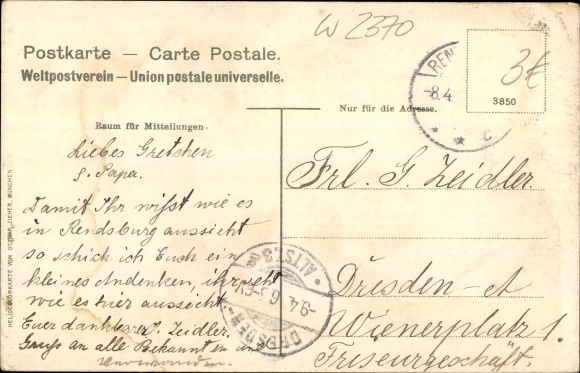 W 2370
Postkarte — Carte Postale.
Weltpostverein — Union postale universelle.
REN
-8.4
* * C
3€
3850
Nur für die Adresse.
Raum für Mitteilungen.
Liebes Gretchen
& Papa.
Damit Ihr wißt wie es
in Rendsburg aussieht
so schick ich Euch ein
kleines Andenken, ihr seht
wie es hier aussieht
Euer dankbarer Zeidler.
Gruß an alle Bekannten und
Verwandten.
Frl. G. Zeidler.
Dresden-A
Wienerplatz 1.
Friseurgeschäft.
DRESDEN-ALTST.
-9.4.
HELIOCOLORKARTE VON OTTMAR ZIEHER, MÜNCHEN